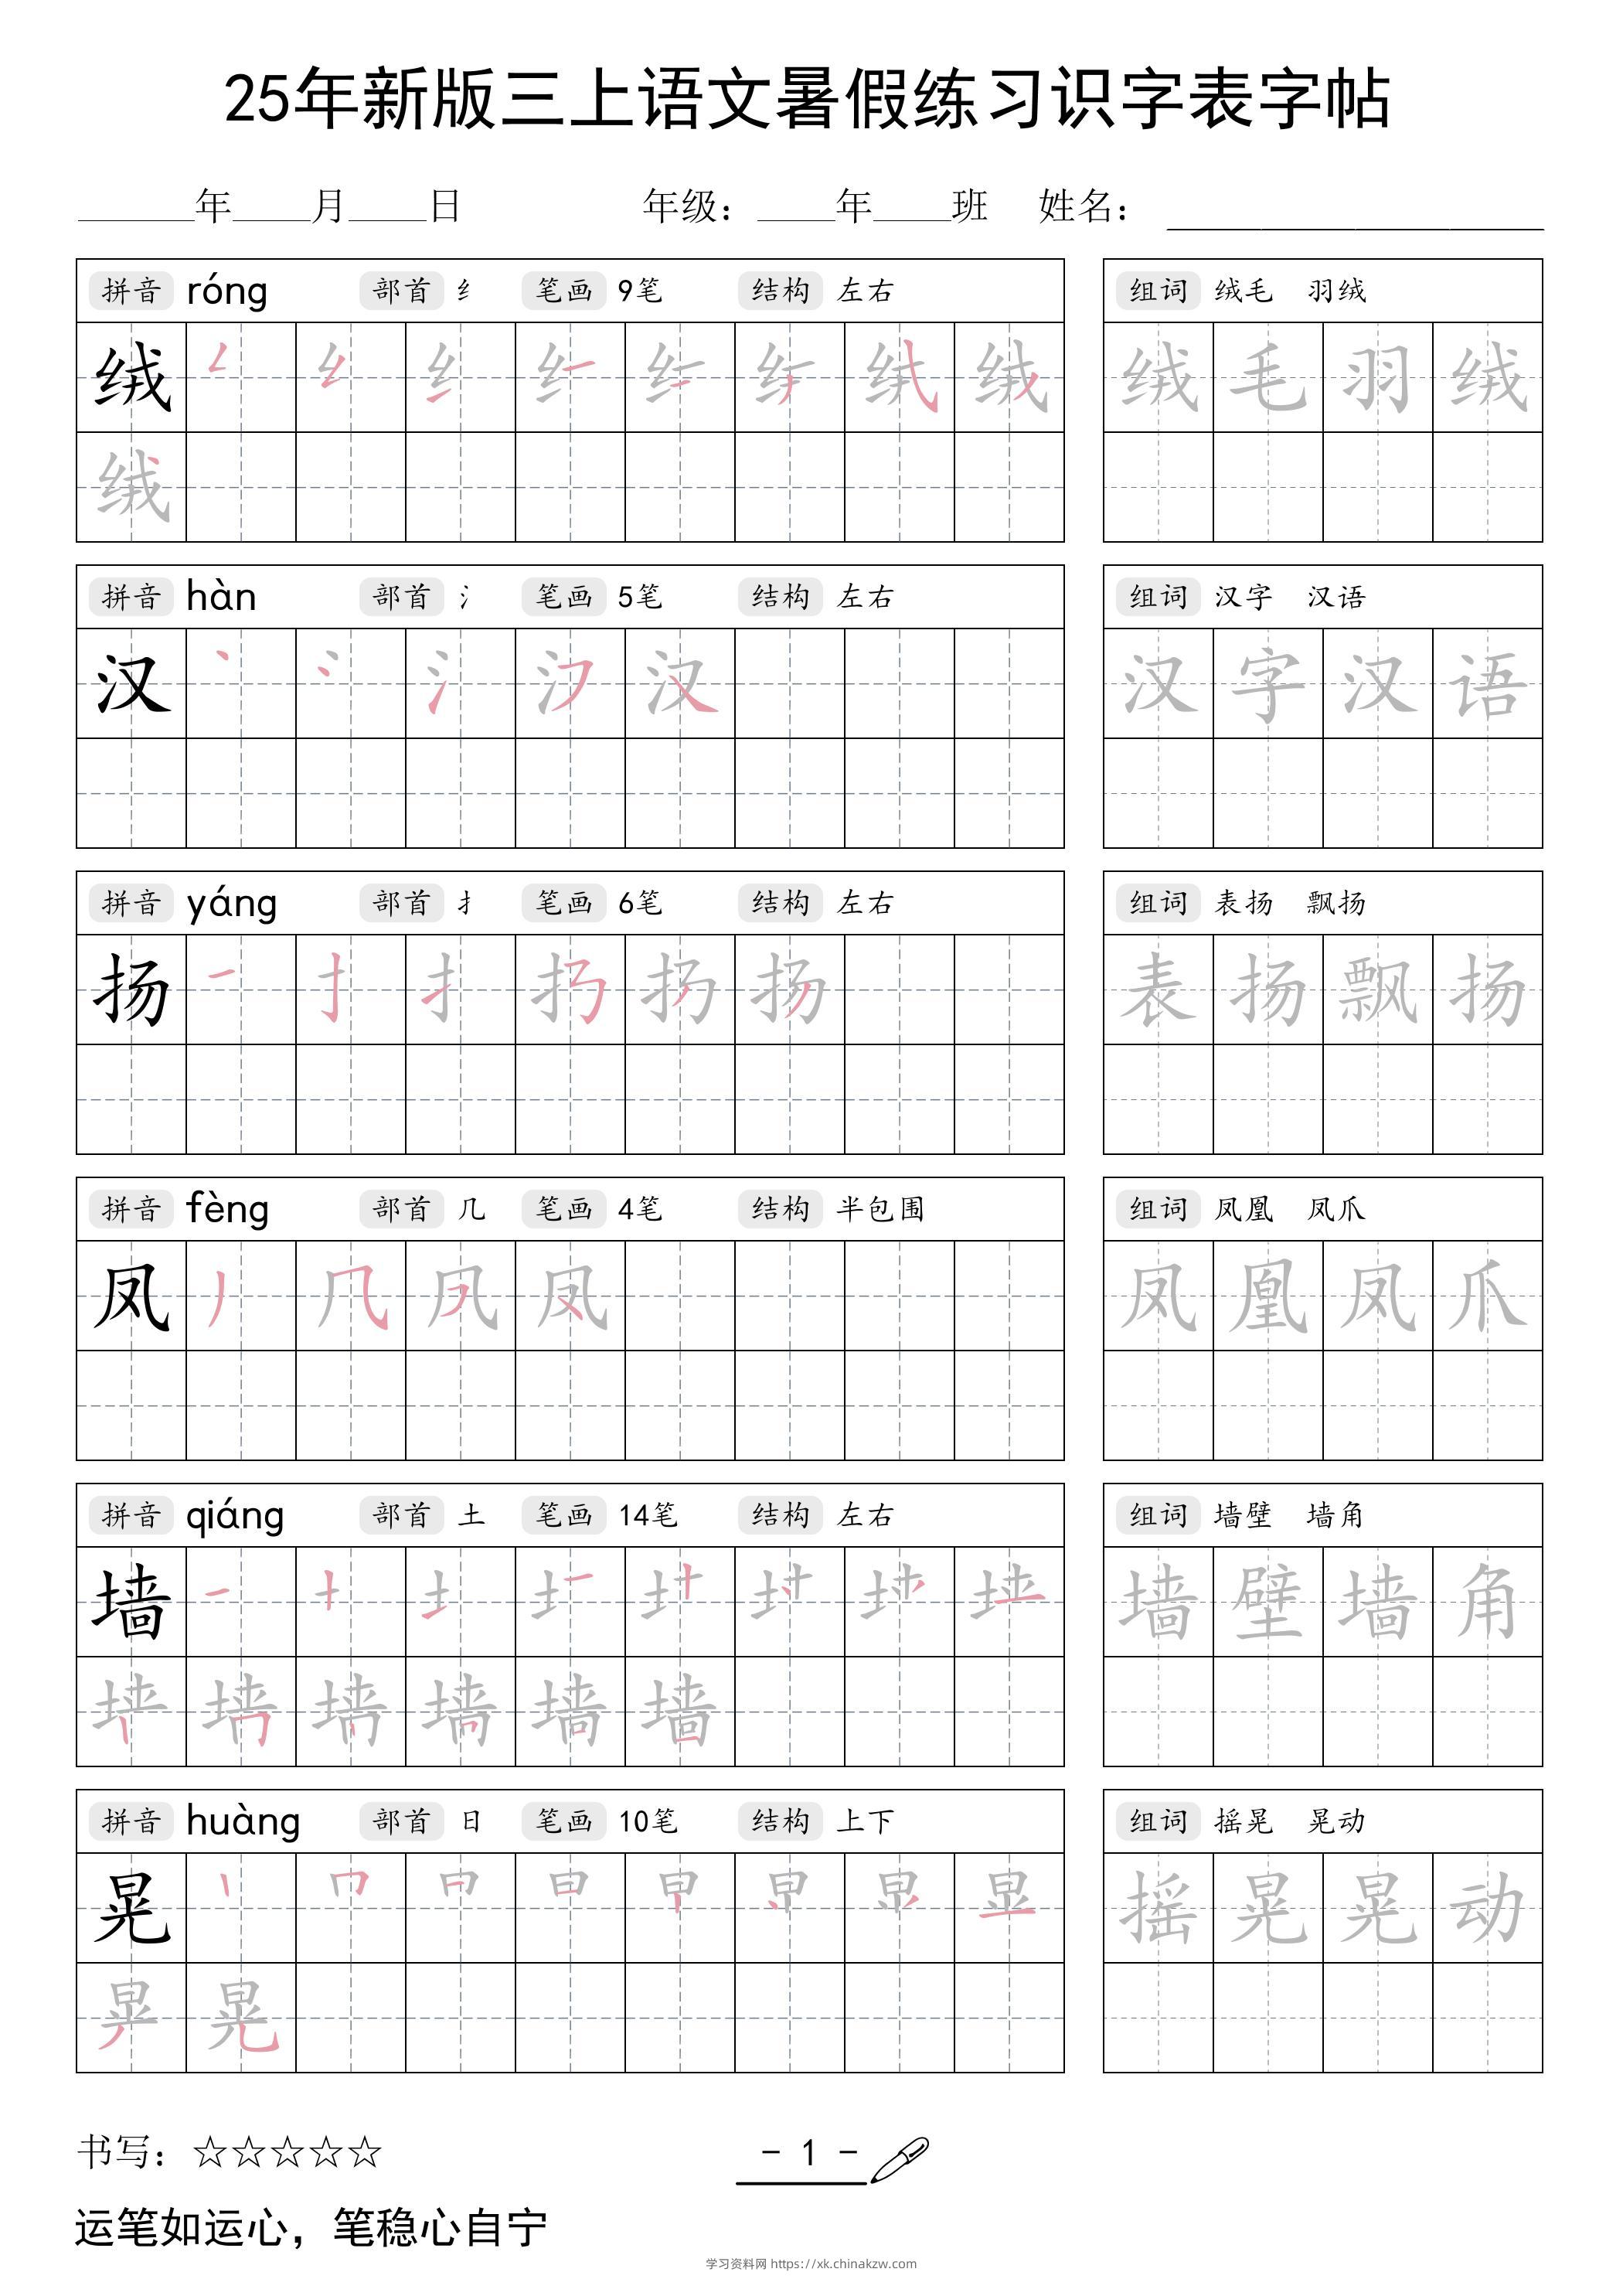 25年新版三上语文暑假练习识字表字帖
______年____月____日 年级：____年____班 姓名：
拼音 róng 部首 纟 笔画 9笔 结构 左右 组词 绒毛 羽绒
绒 绒毛羽绒
绒
拼音 hàn 部首 氵 笔画 5笔 结构 左右 组词 汉字 汉语
汉 汉字汉语
拼音 yáng 部首 扌 笔画 6笔 结构 左右 组词 表扬 飘扬
扬 表扬飘扬
拼音 fèng 部首 几 笔画 4笔 结构 半包围 组词 凤凰 凤爪
凤 凤凰凤爪
拼音 qiáng 部首 土 笔画 14笔 结构 左右 组词 墙壁 墙角
墙 墙壁墙角
墙
拼音 huàng 部首 日 笔画 10笔 结构 上下 组词 摇晃 晃动
晃 摇晃晃动
晃
书写：☆☆☆☆☆ - 1 -
运笔如运心，笔稳心自宁
学习资料网 https://xk.chinakzw.com